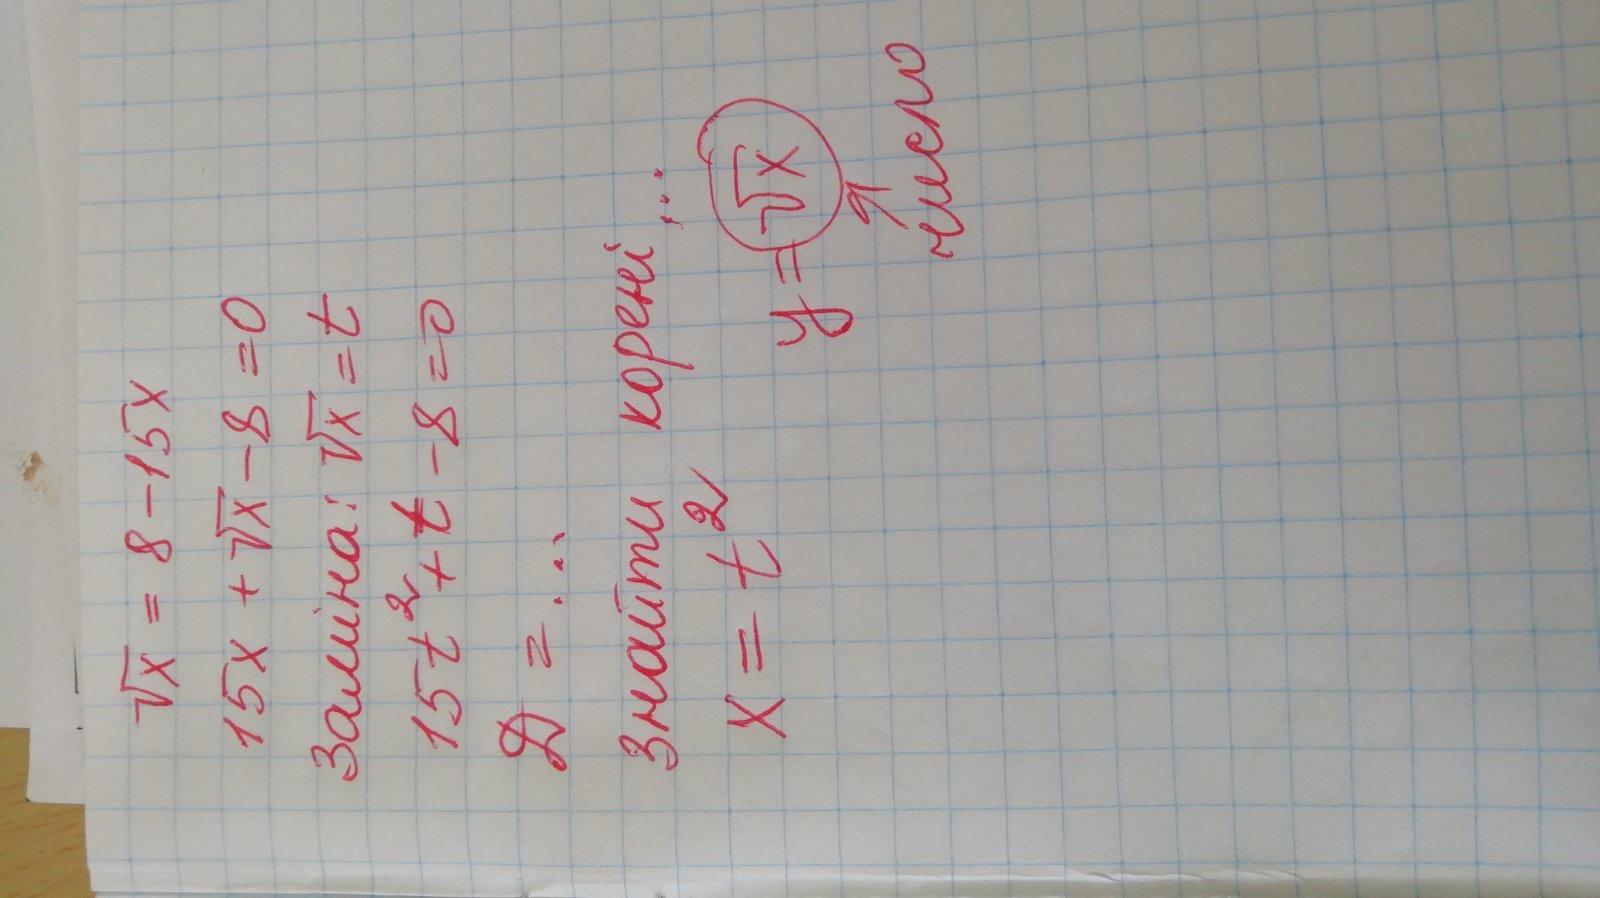 √x = 8 - 15x
15x + √x - 8 = 0
Заміна: √x = t
15t² + t - 8 = 0
D = ...
Знайти корені ...
x = t²
y = √x
число